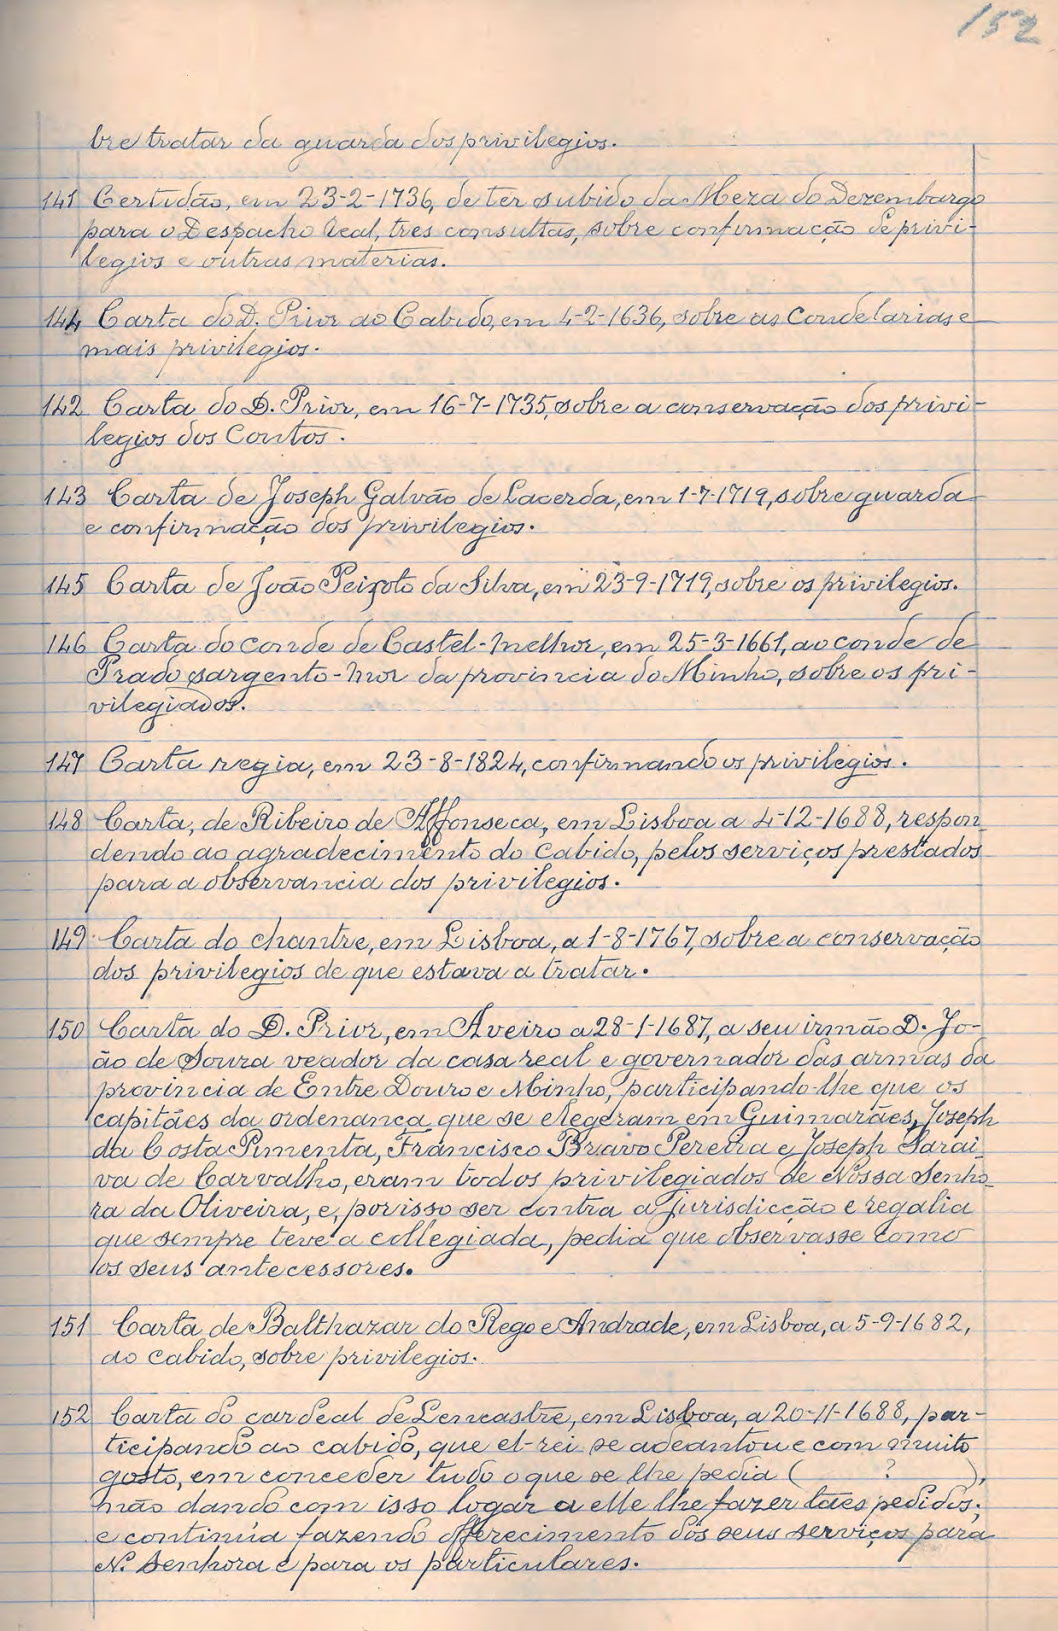 152
bre tratar da guarda dos privilegios.
141 Certidão, em 23-2-1736, de ter subido da Meza do Dezembargo
para o Despacho Real, tres consultas, sobre confirmação de privi-
legios e outras materias.
144 Carta do D. Prior ao Cabido, em 4-2-1636, sobre as Condelarias e
mais privilegios.
142 Carta do D. Prior, em 16-7-1735, sobre a conservação dos privi-
legios dos Contos.
143 Carta de Joseph Galvão de Lacerda, em 1-7-1719, sobre guarda
e confirmação dos privilegios.
145 Carta de João Peixoto da Silva, em 23-9-1719, sobre os privilegios.
146 Carta do conde de Castel-Melhor, em 25-3-1661, ao conde de
Prado sargento-mor da provincia do Minho, sobre os pri-
vilegiados.
147 Carta regia, em 23-8-1824, confirmando os privilegios.
148 Carta, de Ribeiro de Affonseca, em Lisboa a 4-12-1688, respon-
dendo ao agradecimento do cabido, pelos serviços prestados
para a observancia dos privilegios.
149 Carta do chantre, em Lisboa, a 1-8-1767, sobre a conservação
dos privilegios de que estava a tratar.
150 Carta do D. Prior, em Aveiro a 28-1-1687, a seu irmão D. Jo-
ão de Souza veador da casa real e governador das armas da
provincia de Entre Douro e Minho, participando-lhe que os
capitães da ordenança que se elegeram em Guimarães, Joseph
da Costa Pimenta, Francisco Bravo Pereira e Joseph Sarai-
va de Carvalho, eram todos privilegiados de Nossa Senho-
ra da Oliveira, e, por isso ser contra a jurisdicção e regalia
que sempre teve a collegiada, pedia que observasse como
os seus antecessores.
151 Carta de Balthazar do Rego e Andrade, em Lisboa, a 5-9-1682,
ao cabido, sobre privilegios.
152 Carta do cardeal de Lencastre, em Lisboa, a 20-11-1688, par-
ticipando ao cabido, que el-rei se adeantou e com muito
gosto, em conceder tudo o que se lhe pedia ( ? ),
não dando com isso logar a elle lhe fazer tães pedidos;
e continúa fazendo offerecimento dos seus serviços para
N. Senhora e para os particulares.